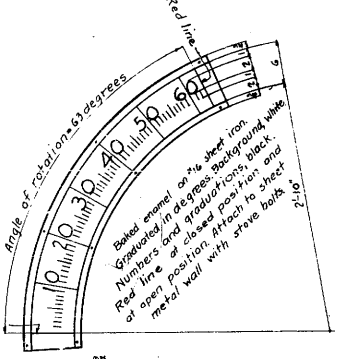 Red line
Angle of rotation = 63 degrees
10 20 30 40 50 60
6
2'-10"
Baked enamel on #16 sheet iron.
Graduated in degrees. Background, white.
Numbers and graduations, black.
Red line at closed position and
at open position. Attach to sheet
metal wall with stove bolts.